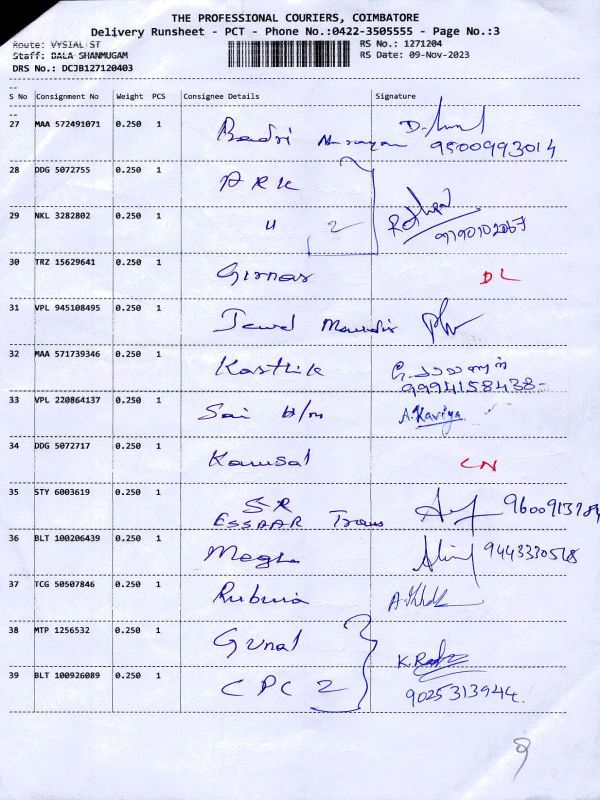 THE PROFESSIONAL COURIERS, COIMBATORE
Delivery Runsheet - PCT - Phone No.:0422-3505555 - Page No.:3
Route: VYSIAL ST RS No.: 1271204
Staff: BALA SHANMUGAM RS Date: 09-Nov-2023
DRS No.: DCJB127120403
S No Consignment No Weight PCS Consignee Details Signature
27 MAA 572491071 0.250 1 Badri
9500993014
28 DDG 5072755 0.250 1 ARK
29 NKL 3282802 0.250 1 " 2
30 TRZ 15629641 0.250 1 Girnar DL
31 VPL 945108495 0.250 1
32 MAA 571739346 0.250 1 Karthik
9994158438
33 VPL 220864137 0.250 1 Sai A.Kaviya
34 DDG 5072717 0.250 1 CN
35 STY 6003619 0.250 1 SR
ESSAAR Trans
36 BLT 100206439 0.250 1 Megha
37 TCG 50507846 0.250 1
38 MTP 1256532 0.250 1 Gunal
39 BLT 100926089 0.250 1 CPC 2
9025313944